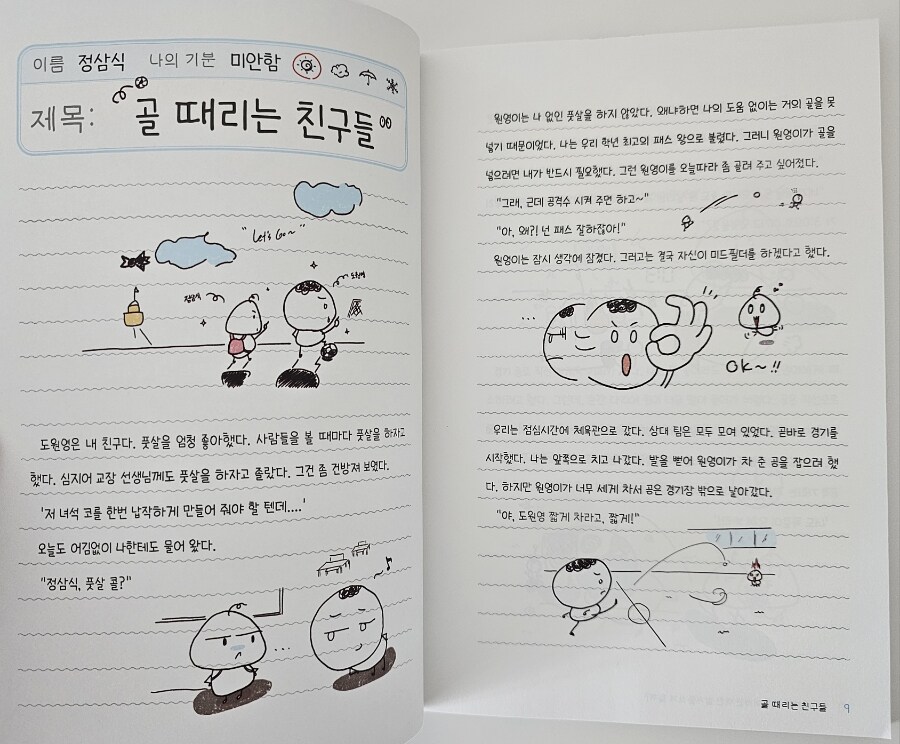 이름 정삼식 나의 기분 미안함
제목: 골 때리는 친구들
"Let's Go~"
정삼식
도원영
도원영은 내 친구다. 풋살을 엄청 좋아했다. 사람들을 볼 때마다 풋살을 하자고
했다. 심지어 교장 선생님께도 풋살을 하자고 졸랐다. 그건 좀 건방져 보였다.
'저 녀석 코를 한번 납작하게 만들어 줘야 할 텐데....'
오늘도 어김없이 나한테도 물어 왔다.
"정삼식, 풋살 콜?"
...
원영이는 나 없인 풋살을 하지 않았다. 왜냐하면 나의 도움 없이는 거의 골을 못
넣기 때문이었다. 나는 우리 학년 최고의 패스 왕으로 불렸다. 그러니 원영이가 골을
넣으려면 내가 반드시 필요했다. 그런 원영이를 오늘따라 좀 골려 주고 싶어졌다.
"그래, 근데 공격수 시켜 주면 하고~"
"아, 왜?! 넌 패스 잘하잖아!"
원영이는 잠시 생각에 잠겼다. 그러고는 결국 자신이 미드필더를 하겠다고 했다.
...
OK~!!
우리는 점심시간에 체육관으로 갔다. 상대 팀은 모두 모여 있었다. 곧바로 경기를
시작했다. 나는 앞쪽으로 치고 나갔다. 발을 뻗어 원영이가 차 준 공을 잡으려 했
다. 하지만 원영이가 너무 세게 차서 공은 경기장 밖으로 날아갔다.
"야, 도원영 짧게 차라고, 짧게!"
골 때리는 친구들 9